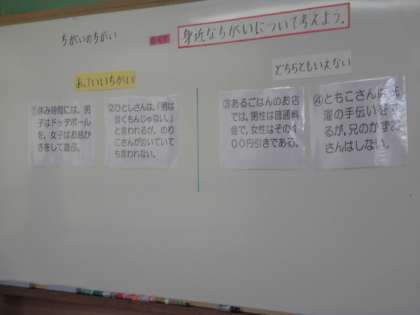 ちがいのちがい
身近なちがいについて考えよう。
あっていいちがい
どちらともいえない
①休み時間には、男
子はドッヂボール
を、女子はお絵か
きをして遊ぶ。
②ひとしさんは、「男は
泣くもんじゃない。」
と言われるが、のり
こさんが泣いていて
も言われない。
③あるごはんのお店
では、男性は普通料
金で、女性はその1
00円引きである。
④ともこさんは洗
濯の手伝いをす
るが、兄のかずお
さんはしない。